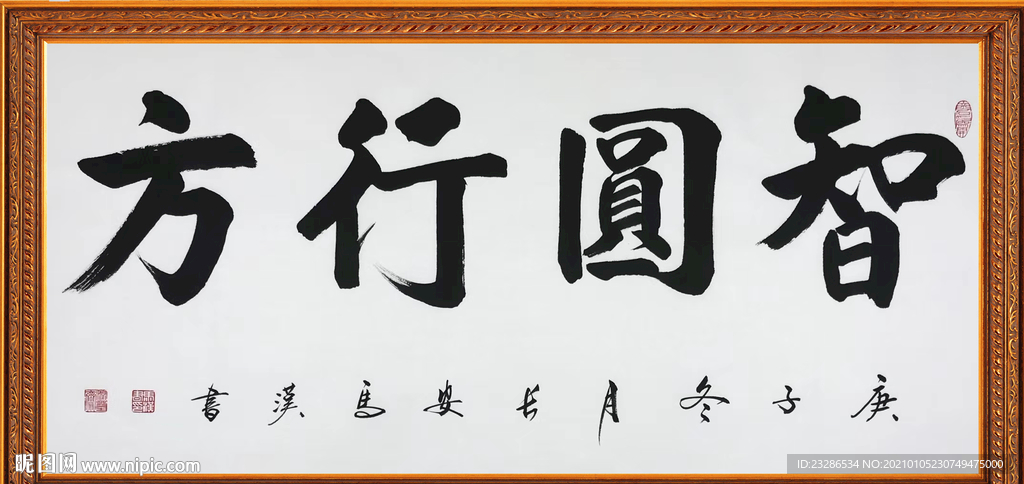 智圓行方
庚子冬月長安馬漢書
昵图网 www.nipic.com
ID:23286534 NO:20210105230749475000